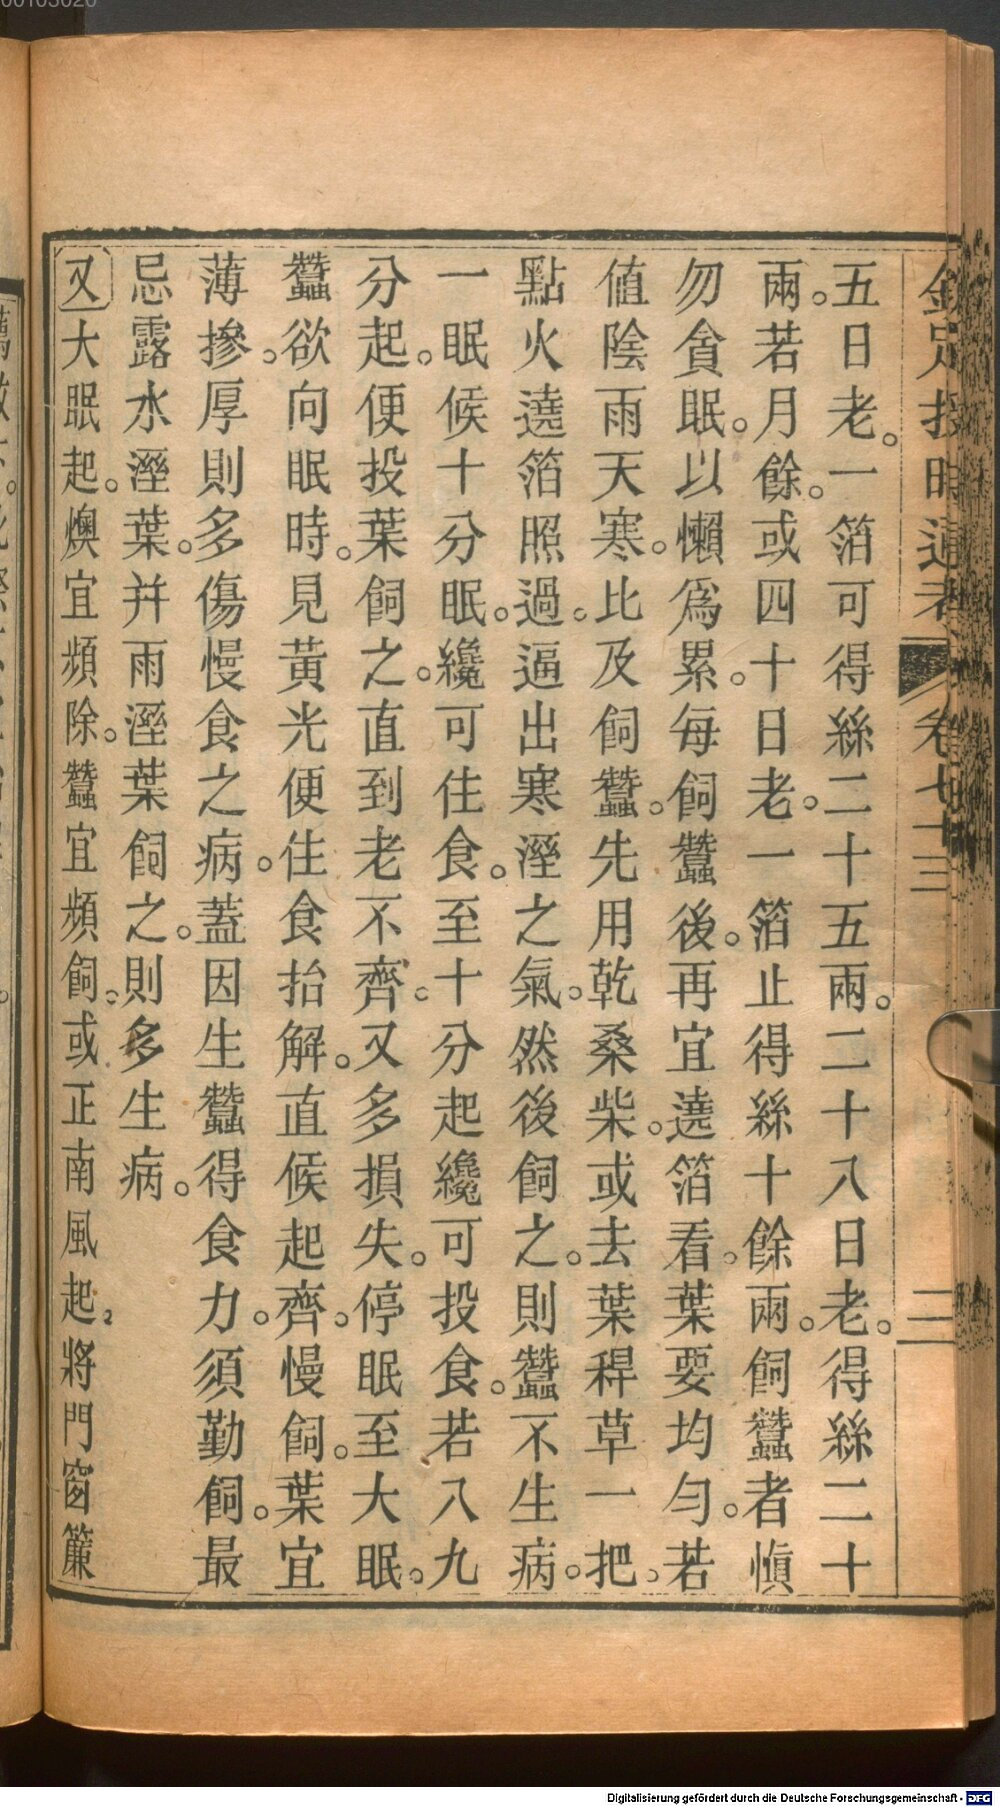 五日老。一箔可得絲二十五兩。二十八日老。得絲二十
兩。若月餘。或四十日老。一箔止得絲十餘兩。飼蠶者慎
勿貪眠。以懶爲累。每飼蠶後。再宜遶箔看。葉要均勻。若
值陰雨天寒。比及飼蠶。先用乾桑柴。或去葉稈草一把。
點火遶箔照過。逼出寒溼之氣。然後飼之。則蠶不生病。
一眠候十分眠。纔可住食。至十分起。纔可投食。若八九
分起。便投葉飼之。直到老不齊。又多損失。停眠至大眠。
蠶欲向眠時。見黃光便住食抬解。直候起齊。慢飼。葉宜
薄摻。厚則多傷慢食之病。蓋因生蠶得食力。須勤飼。最
忌露水溼葉。幷雨溼葉飼之。則多生病。
又大眠起。燠宜頻除。蠶宜頻飼。或正南風起。將門窗簾
卷七十三
三
Digitalisierung gefördert durch die Deutsche Forschungsgemeinschaft - DFG